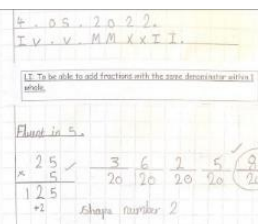 4.05.2022.
IV.V.MMXXII.
LI: To be able to add fractions with the same denominator within 1 whole.
Fluent in 5.
25
× 5
125
+2
3/20 6/20 2/20 5/20 9/20
Shape number 2